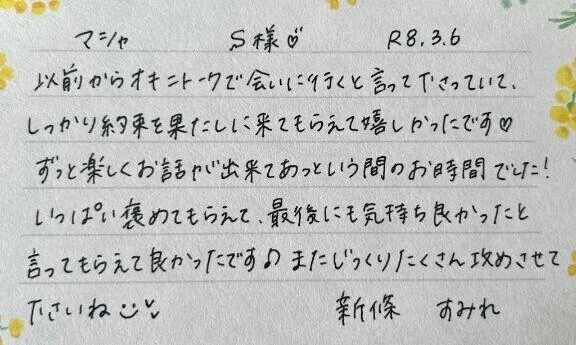 マシャ S様♡ R8.3.6
以前からオキニトークで会いに行くと言って下さっていて、
しっかり約束を果たしに来てもらえて嬉しかったです♡
ずっと楽しくお話が出来てあっという間のお時間でした!
いっぱい褒めてもらえて、最後にも気持ち良かったと
言ってもらえて良かったです♪ またじっくりたくさん攻めさせて
下さいね
新條 すみれ